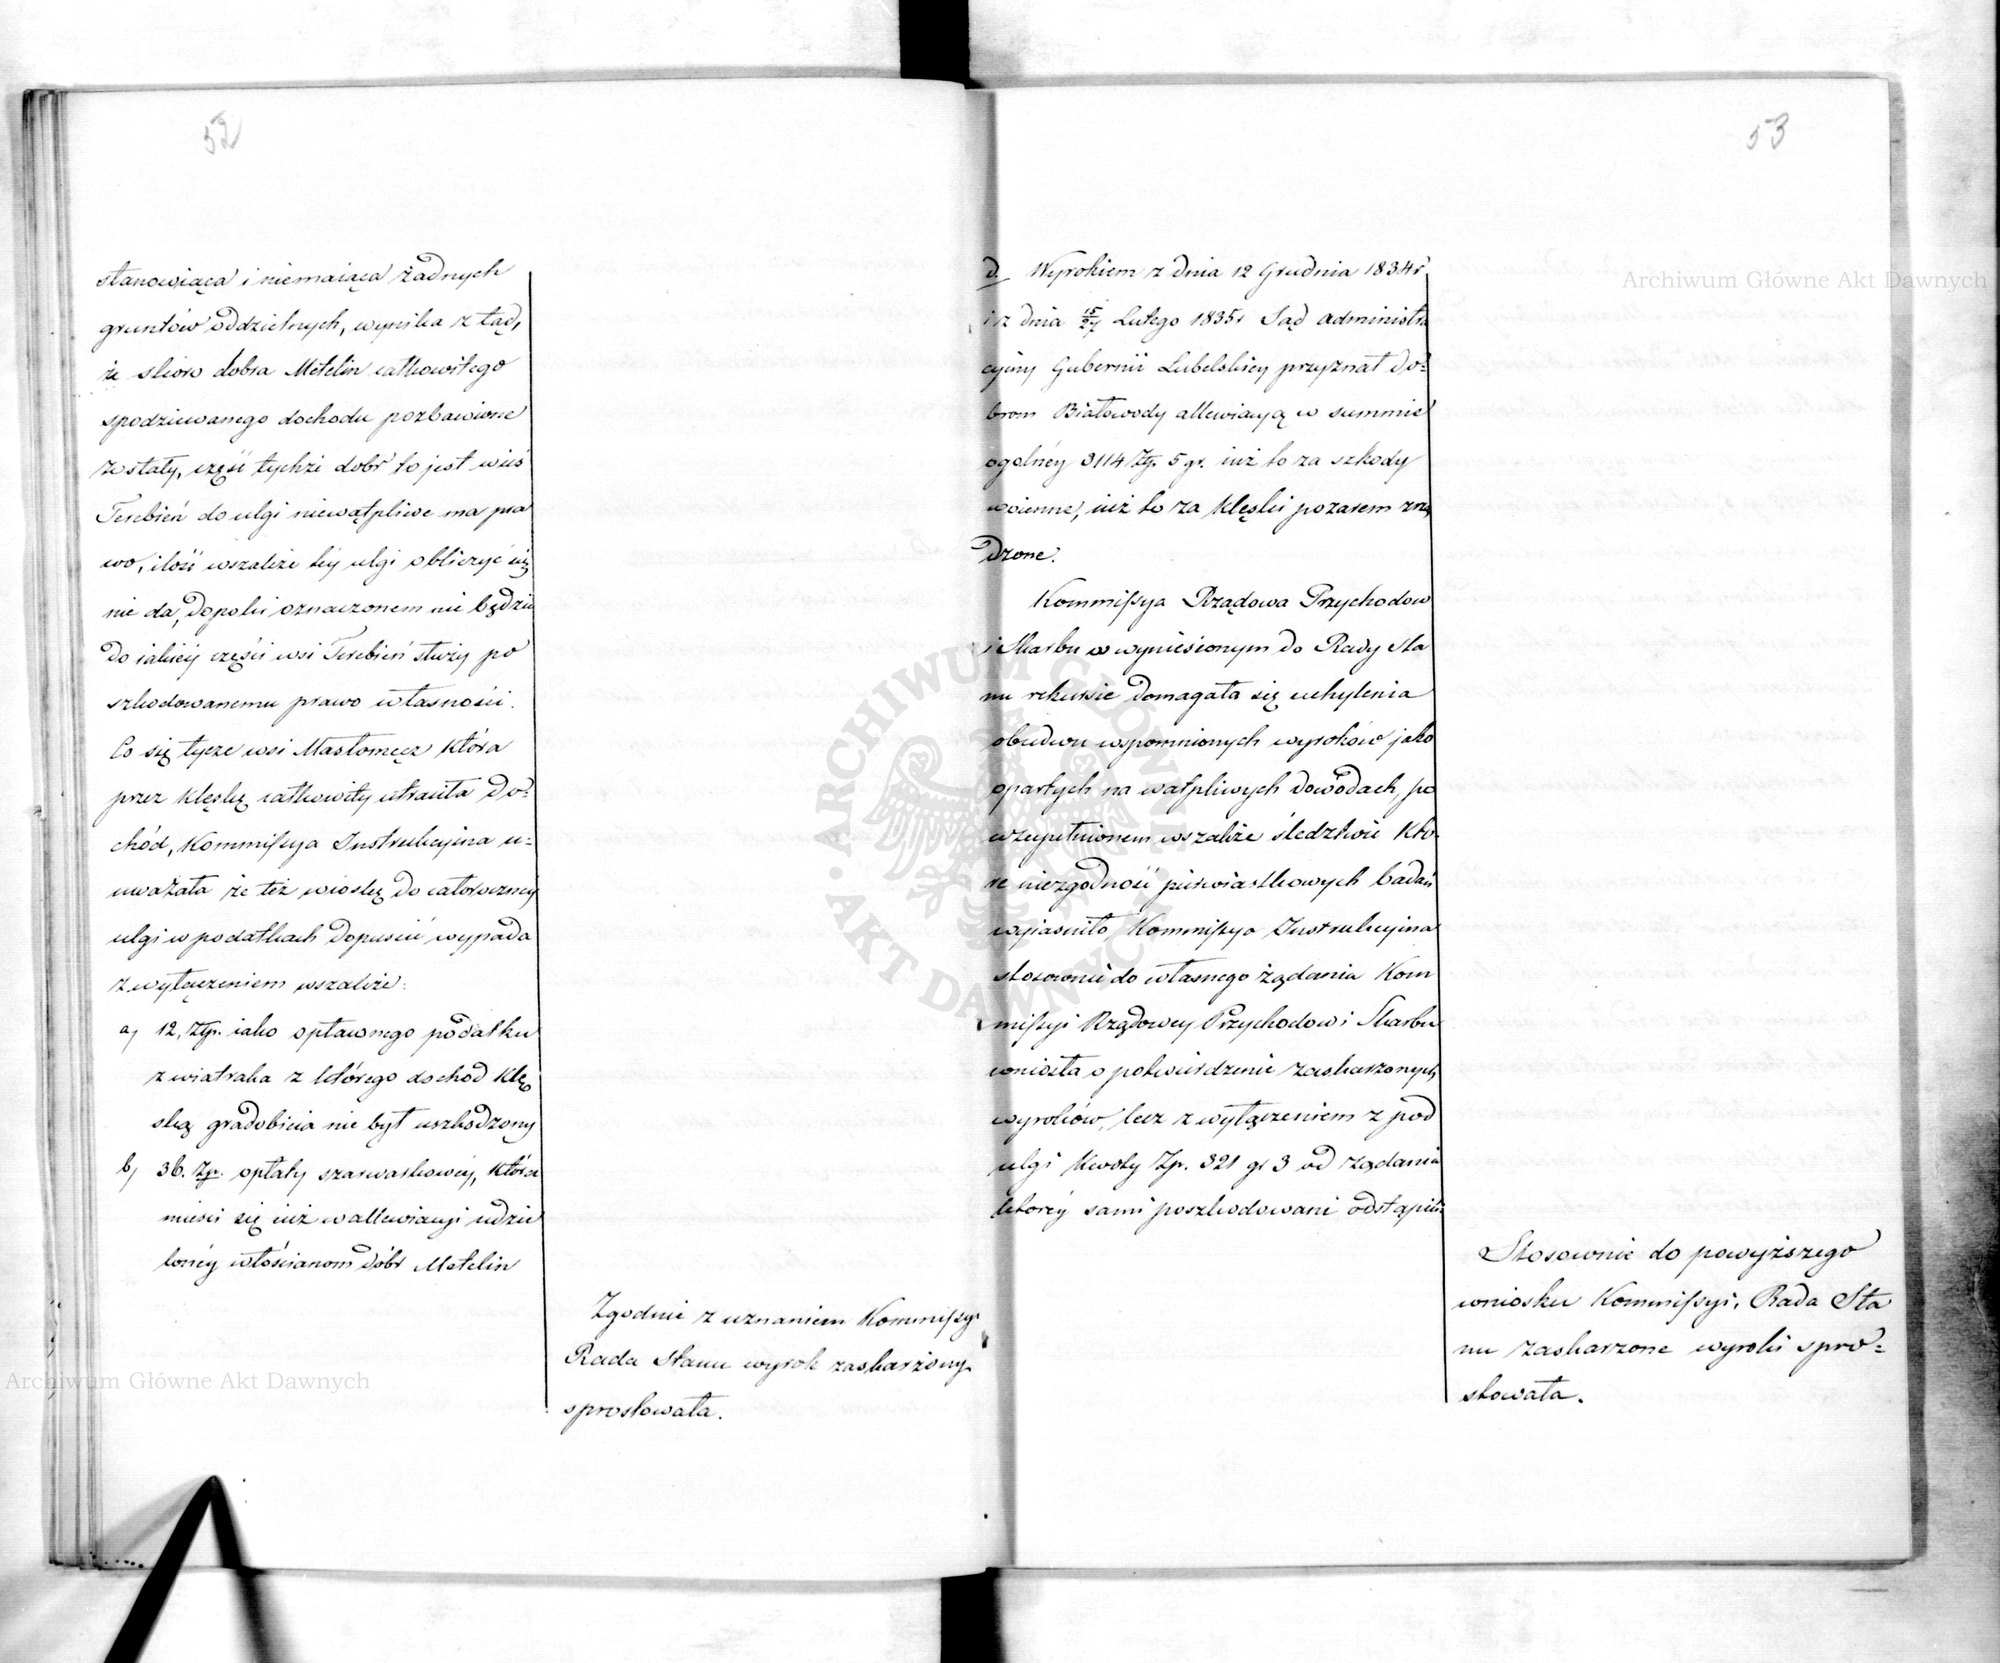 52
stanowiąca i niemaiąca żadnych
gruntów oddzielnych, wynika z tąd,
że skoro dobra Metelin całkowitego
spodziewanego dochodu pozbawione
zostały, część tychże dobr to jest wieś
Terebień do ulgi niewątpliwe ma pra
wo, ilość wszakże téy ulgi obliczyć się
nie da, dopoki oznaczonem nie będzie
do iakiéy części wsi Terebień służy po
szkodowanemu prawo własności.
Co się tycze wsi Masłomęcz która
przez klęskę całkowity utraciła do=
chód, Kommissya Instrukcyina u=
uważała że też wioskę do całoroczney
ulgi w podatkach dopuścić wypada
z wyłączeniem wszakże:
a, 12. Złp. iako opłatnego podatku
z wiatraka z którego dochod klę
ską gradobicia nie był uszkodzony
b, 36. Zp. opłaty szarwarkowéy, która
mieści się iuż w allewiacyi udzie
lonéy włościanom dóbr Metelin
Zgodnie z uznaniem Kommissyi
Rada Stanu wyrok zaskarżony
sprostowała.
53
d. Wyrokiem z dnia 12 Grudnia 1834 r
i z dnia 15/27 Lutego 1835 r Sąd administra
cyiny Gubernii Lubelskiey przyznał do=
brom Białowody allewiacyą w summie
ogolnéy 3114 Złp. 5 gr. iuż to za szkody
woienne, iuż to za klęski pożarem zrzą
dzone.
Kommissya Rządowa Przychodow
i Skarbu w wyniesionym do Rady Sta
nu rekursie domagała się uchylenia
obudwu wspomnionych wyroków jako
opartych na wątpliwych dowodach, po
uzupełnionem wszakże śledztwie któ=
re niezgodność pierwiastkowych badań
wyiaśniło, Kommissya Instrukcyina
stosownie do własnego żądania Kom
missyi Rządowey Przychodow i Skarbu
wniosła o potwierdzenie zaskarżonych
wyroków, lecz z wyłączeniem z pod
ulgi kwoty Zp. 321 gr 3 od żądania
któréy sami poszkodowani odstąpili.
Stosownie do powyższego
wniosku Kommissyi, Rada Sta
nu zaskarżone wyroki spro=
stowała.
Archiwum Główne Akt Dawnych
Archiwum Główne Akt Dawnych
ARCHIWUM GŁÓWNE · AKT DAWNYCH ·